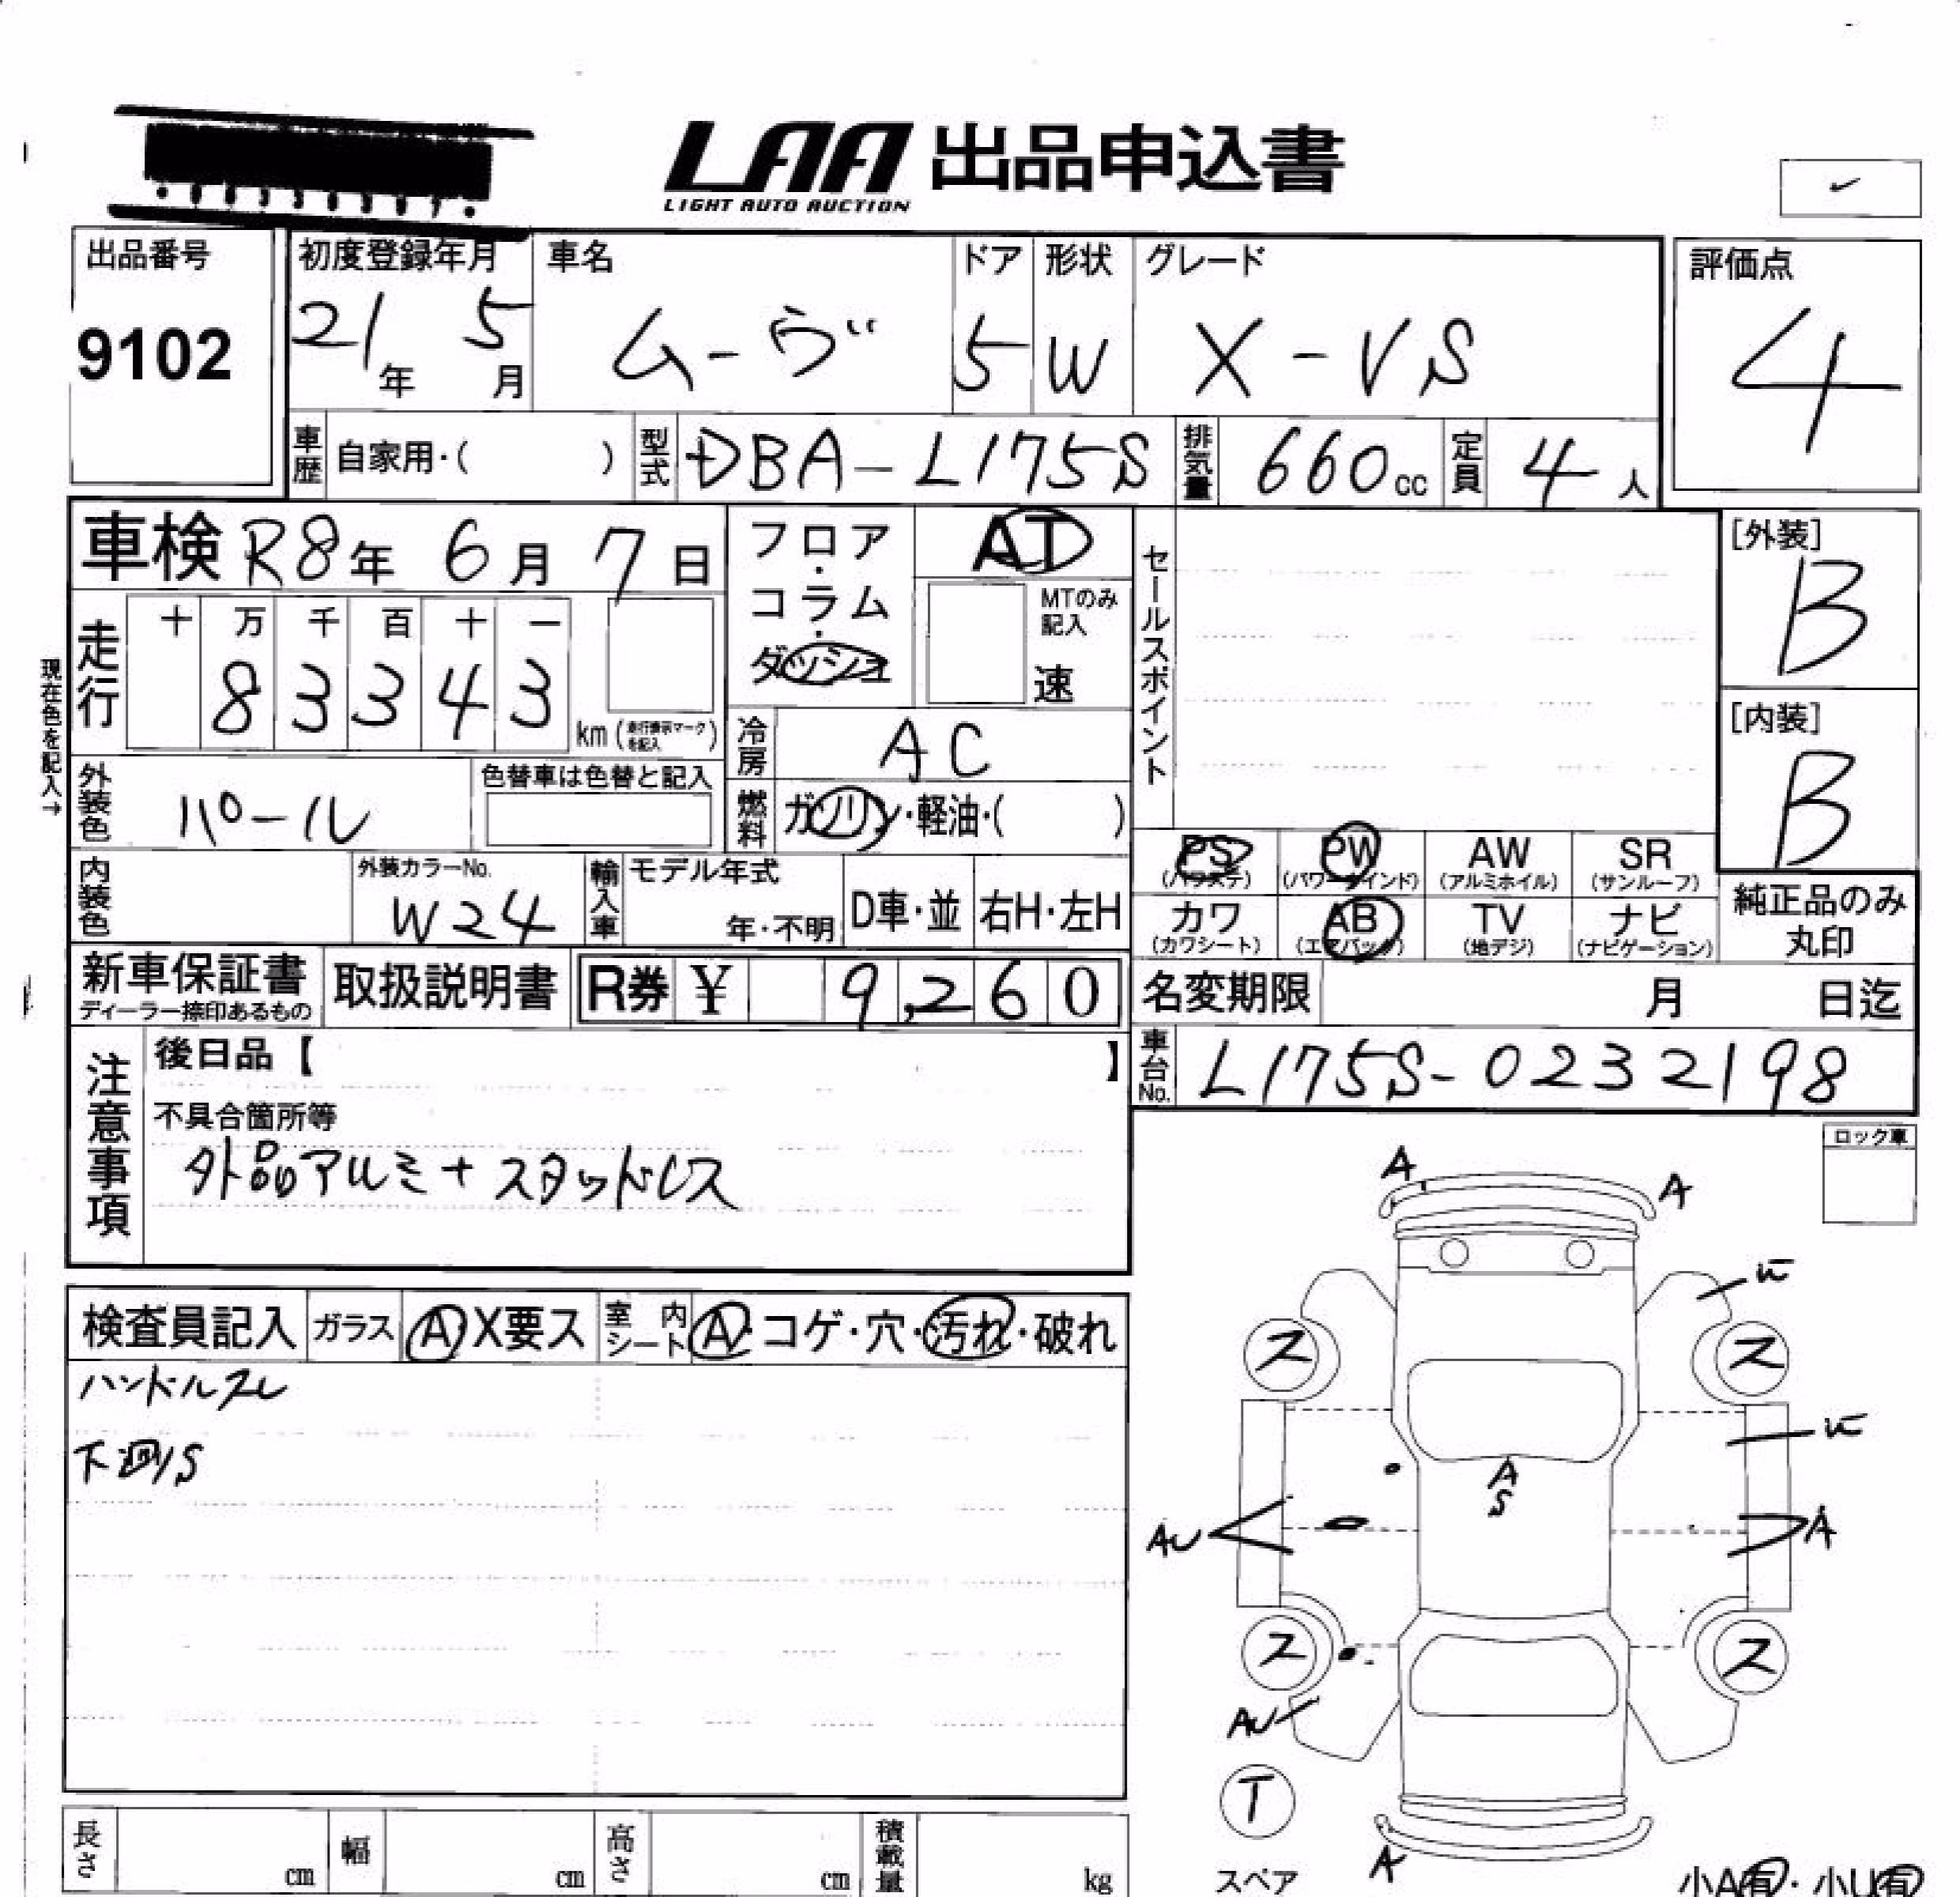 LAA 出品申込書
LIGHT AUTO AUCTION
出品番号 初度登録年月 車名 ドア 形状 グレード 評価点
9102 21年 5月 ムーヴ 5 W X-VS 4
車歴 自家用・( ) 型式 DBA-L175S 排気量 660cc 定員 4人
車検 R8年 6月 7日 フロア・コラム・ダッシュ AT セールスポイント [外装]
B
走行 十 万 千 百 十 一 MTのみ記入
現在色を記入→
83343 km( を記入 ) 速 [内装]
冷房 AC B
外装色 パール 色替車は色替と記入 燃料 ガソリン・軽油・( )
PS PW AW SR
(パワステ) (パワーウインド) (アルミホイル) (サンルーフ)
内装色 外装カラーNo. W24 輸入車 モデル年式 年・不明 D車・並 右H・左H
カワ AB TV ナビ 純正品のみ丸印
(カワシート) (エアバック) (地デジ) (ナビゲーション)
新車保証書 取扱説明書 R券 ¥ 9,260 名変期限 月 日迄
ディーラー捺印あるもの
注意事項 後日品【 】 車台No. L175S-0232198
不具合箇所等
外品アルミ+スタッドレス
ロック車
A A
検査員記入 ガラス A X要ス 室内シート A・コゲ・穴・汚れ・破れ
ハンドルスレ
下廻りS
ス ス
A
S
AU A
ス ス
AU
T
スペア
A
長さ cm 幅 cm 高さ cm 積載量 kg
小A有・小U有